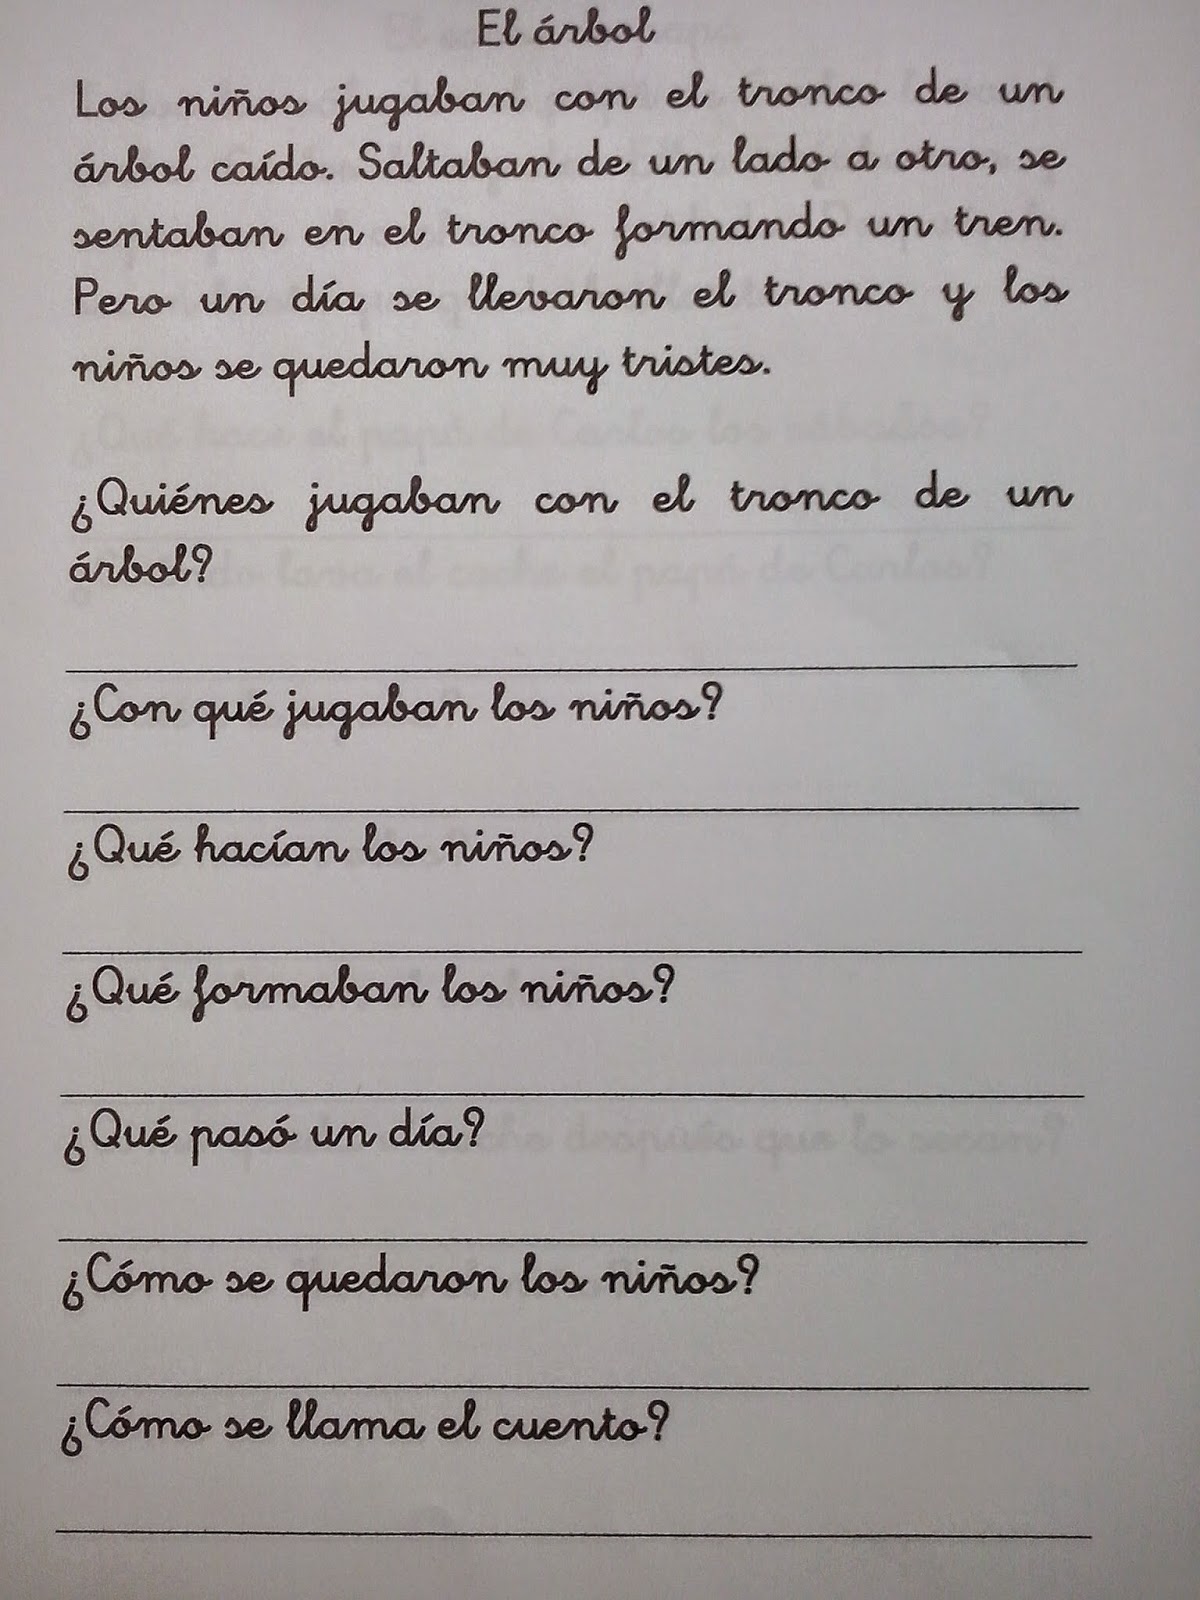 El árbol
Los niños jugaban con el tronco de un
árbol caído. Saltaban de un lado a otro, se
sentaban en el tronco formando un tren.
Pero un día se llevaron el tronco y los
niños se quedaron muy tristes.
¿Qué hace el papá de Carlos los sábados?
¿Quiénes jugaban con el tronco de un
árbol?
lava el coche el papá de Carlos?
¿Con qué jugaban los niños?
¿Qué hacían los niños?
¿Qué formaban los niños?
¿Qué pasó un día?
después que lo secan?
¿Cómo se quedaron los niños?
¿Cómo se llama el cuento?